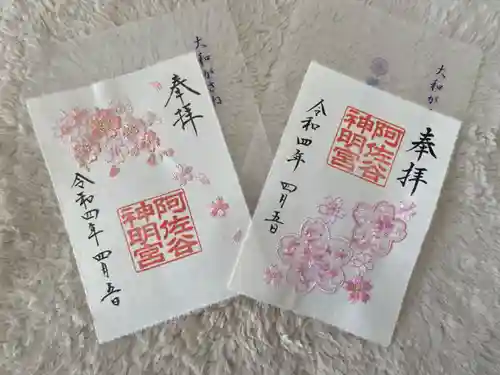 大和がさね
奉拝
阿佐谷
神明宮
令和四年 四月五日
大和が
奉拝
阿佐谷
神明宮
令和四年 四月五日